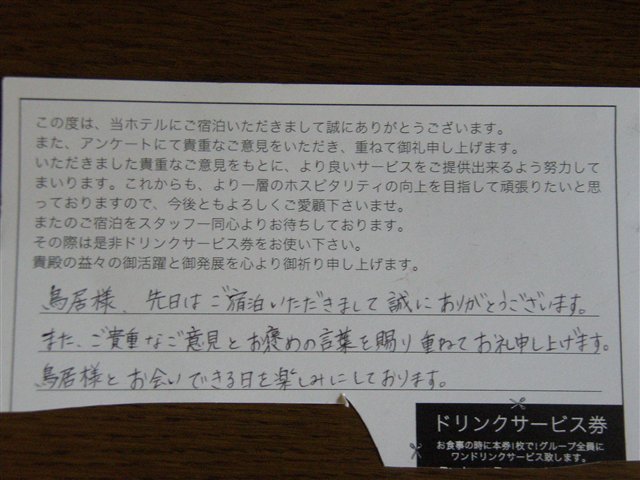 この度は、当ホテルにご宿泊いただきまして誠にありがとうございます。
また、アンケートにて貴重なご意見をいただき、重ねて御礼申し上げます。
いただきました貴重なご意見をもとに、より良いサービスをご提供出来るよう努力して
まいります。これからも、より一層のホスピタリティの向上を目指して頑張りたいと思
っておりますので、今後ともよろしくご愛顧下さいませ。
またのご宿泊をスタッフ一同心よりお待ちしております。
その際は是非ドリンクサービス券をお使い下さい。
貴殿の益々の御活躍と御発展を心より御祈り申し上げます。
鳥居様、先日はご宿泊いただきまして誠にありがとうございます。
また、ご貴重なご意見とお褒めの言葉を賜り重ねてお礼申し上げます。
鳥居様とお会いできる日を楽しみにしております。
ドリンクサービス券
お食事の時に本券1枚で1グループ全員に
ワンドリンクサービス致します。